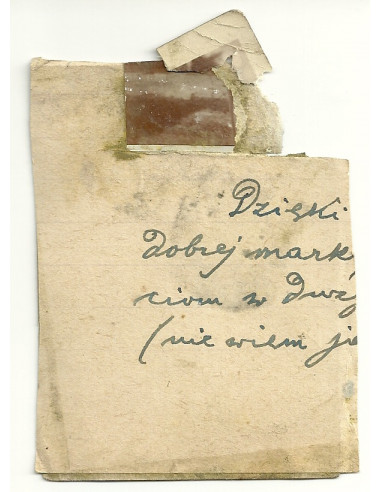 Dzięki
dobrej mark
ciom w Dwó
(nie wiem je